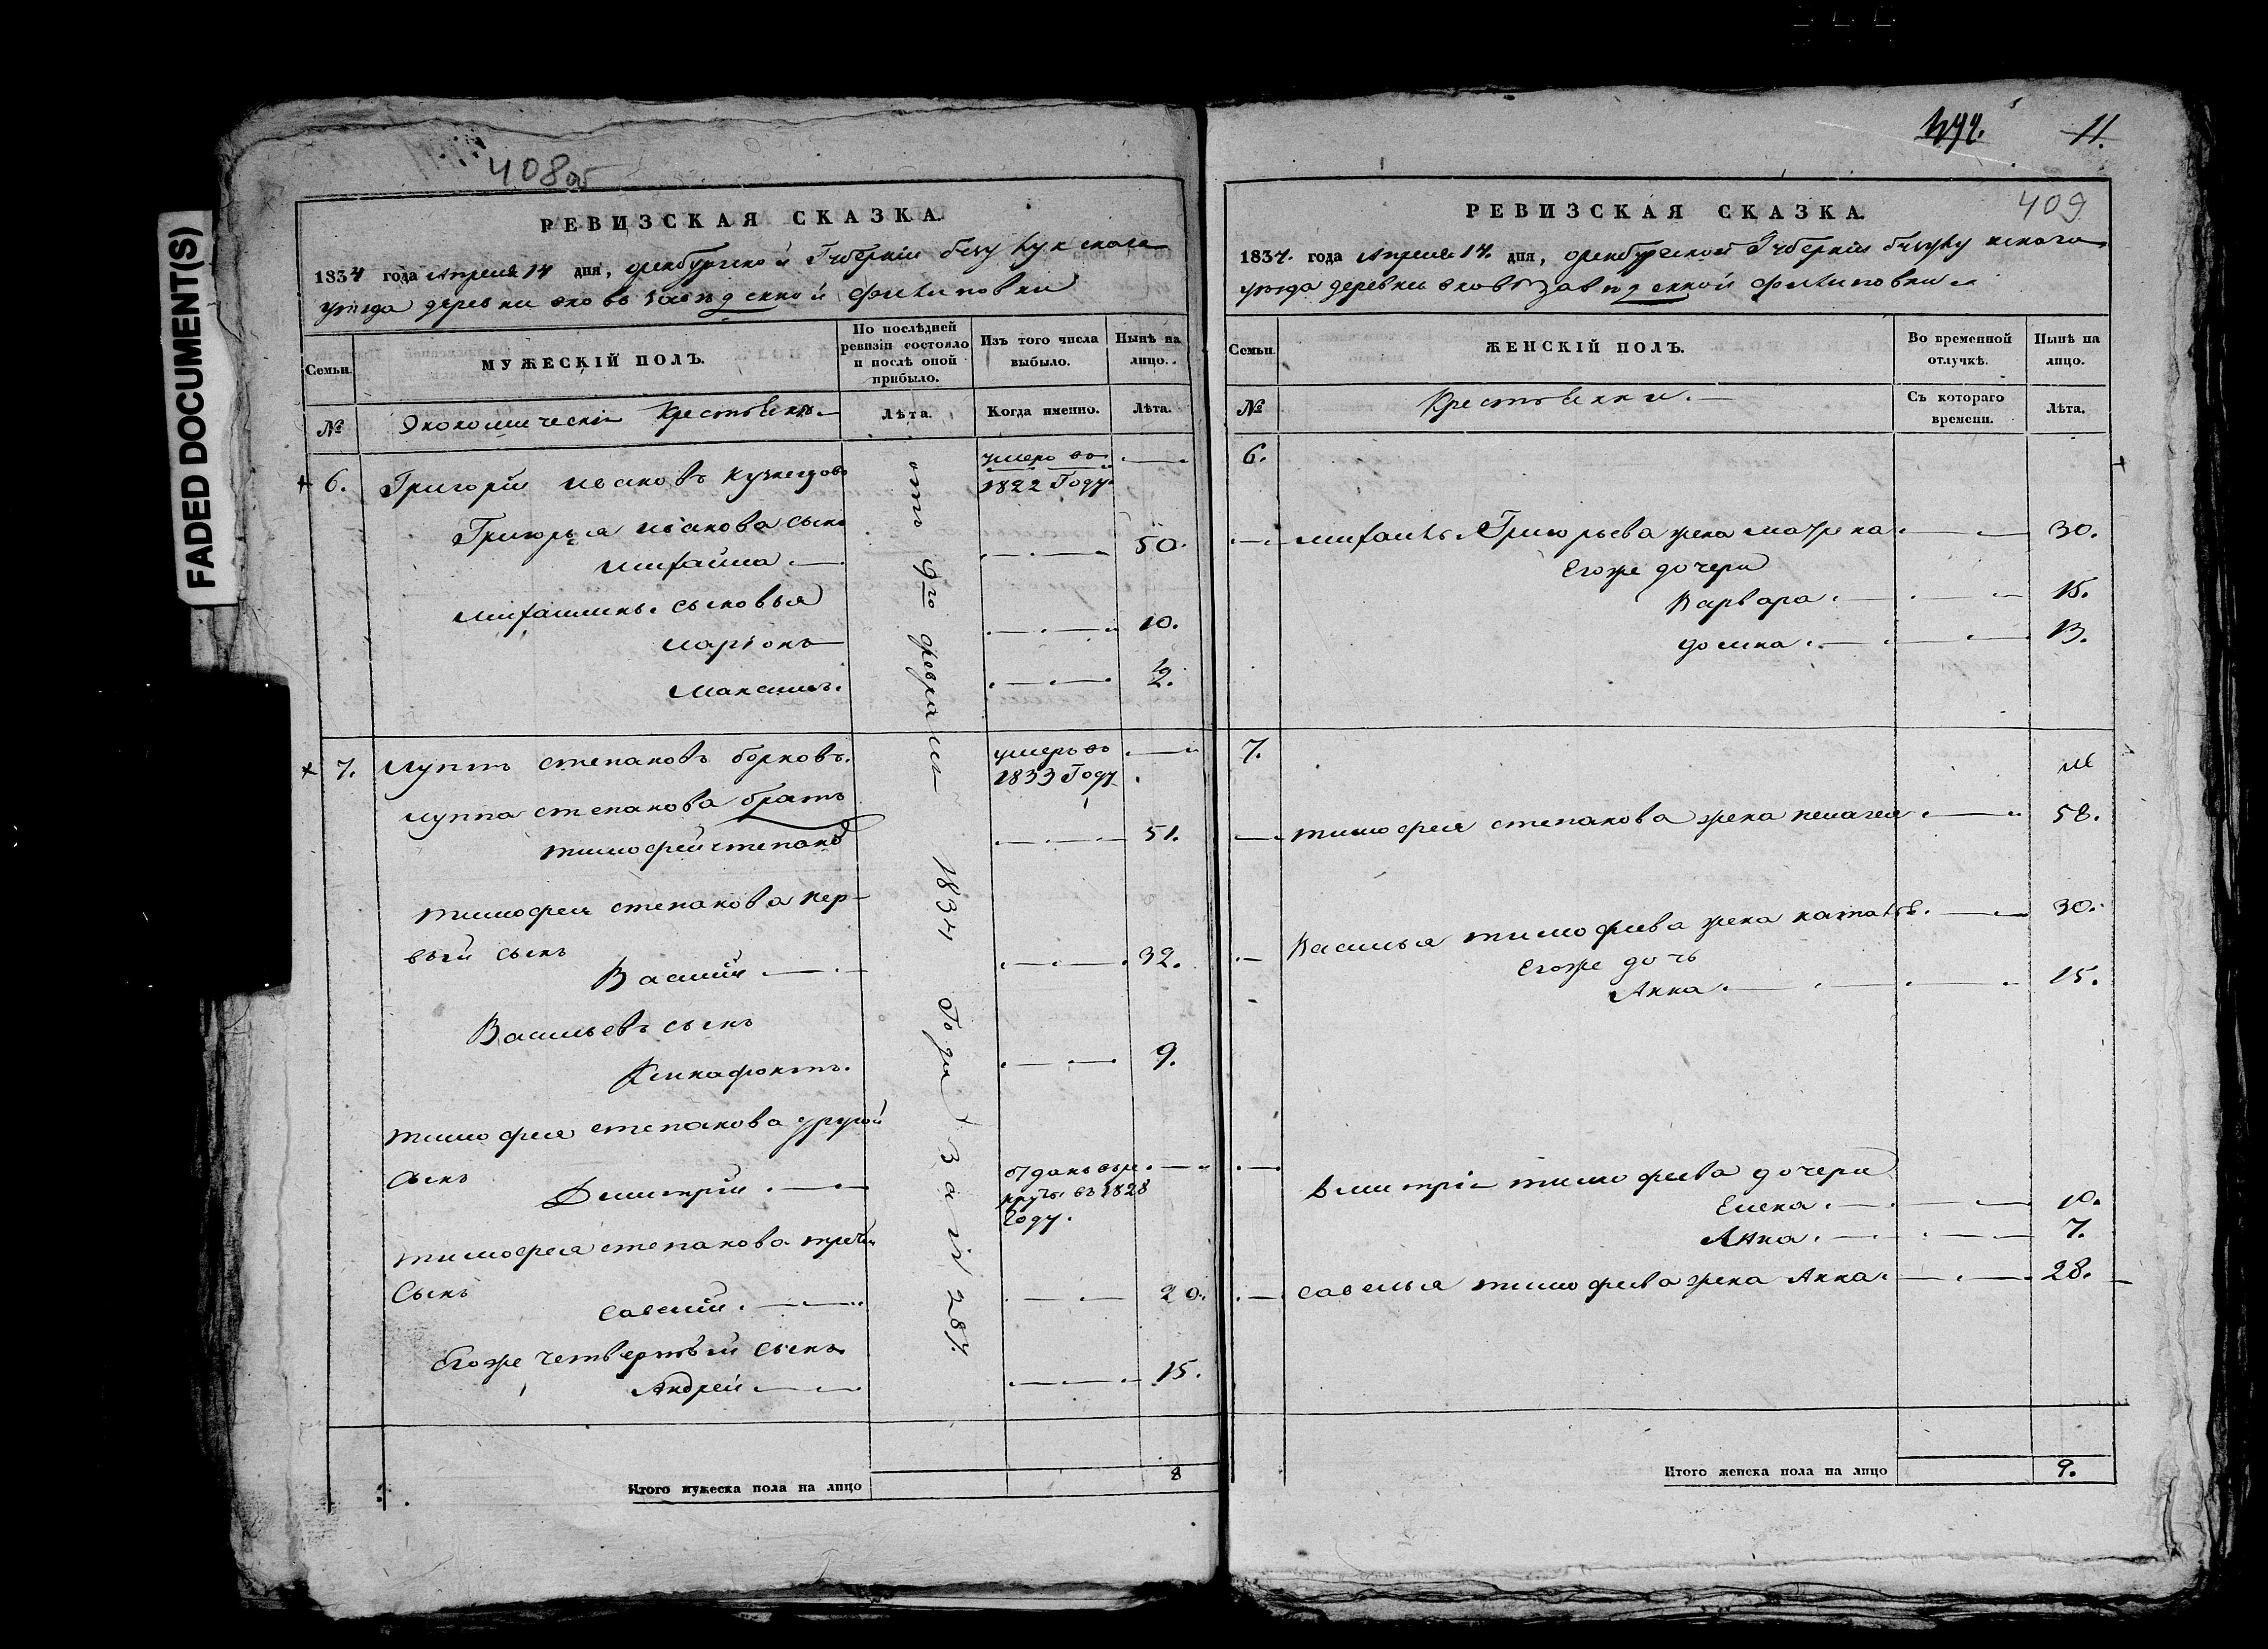 FADED DOCUMENT(S)
408об
РЕВИЗСКАЯ СКАЗКА.
1834 года Апреля 14 дня, оренбургской Губернiи бузулукскага
уезда деревни вновь заведенной филиповки
Семьи.
МУЖЕСКIЙ ПОЛЪ.
По послѣдней ревизiи состояло и послѣ оной прибыло.
Изъ того числа выбыло.
Нынѣ на лицо.
№
Экономическiи крестьяня
Лѣта.
Когда именно.
Лѣта.
6. Григорiй ивановъ
умеръ во
1822 Году
Григорья иванова сынъ
Михайла 50.
Михайлины сыновья
Ларiонъ 10.
Максимъ. 1/2.
7. Луппъ степановъ борковъ.
умеръ во
1833 Году
Луппа степанова братъ
тимофей степановъ 51.
тимофея степанова пер-
вый сынъ
Василiй 32.
Васильевъ сынъ
Ксинафонтъ. 9.
тимофея степанова другой
сынъ
Дмитрiй
отданъ в ре
круты въ 1828
Году.
тимофея степанова третiй
Сынъ
савелiй. 20.
Егоже четвертый сынъ
Андрей 15.
отъ 9го февраля 1834 Года за № 287.
Итого мужеска пола на лицо 8
11.
409
РЕВИЗСКАЯ СКАЗКА.
1834. года Апреля 14. дня, оренбургской Губернiи бузулукскаго
уезда деревни вновь заведенной филиповки
Семьи.
ЖЕНСКIЙ ПОЛЪ.
Во временной отлучкѣ.
Нынѣ на лицо.
№
Крестьянки.
Съ котораго времени.
Лѣта.
6.
михайлы Григорьева жена матрена 30.
Егоже дочери
Варвара. 15.
домна. 13.
7.
тимофея степанова жена пелагея 58.
Василья тимофеева жена наталья. 30.
Егоже дочь
Анна. 15.
Дмитрiя тимофеева дочери
Елена. 10.
Анна. 7.
савелья тимофеева жена Анна. 28.
Итого женска пола на лицо 9.